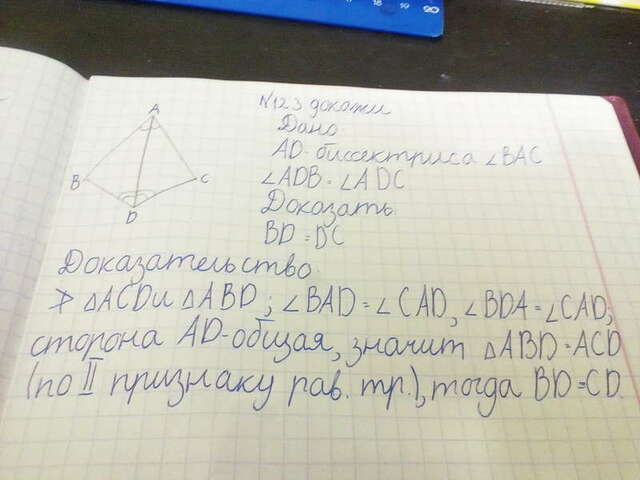 18 19 20
N123 докажи
Дано
A
AD-биссектриса ∠BAC
B
C
∠ADB=∠ADC
D
Доказать
BD=DC
Доказательство
∆ACD и ∆ABD; ∠BAD=∠CAD, ∠BDA=∠CAD;
сторона AD-общая, значит ∆ABD=ACD
(по II признаку рав. тр.), тогда BD=CD.